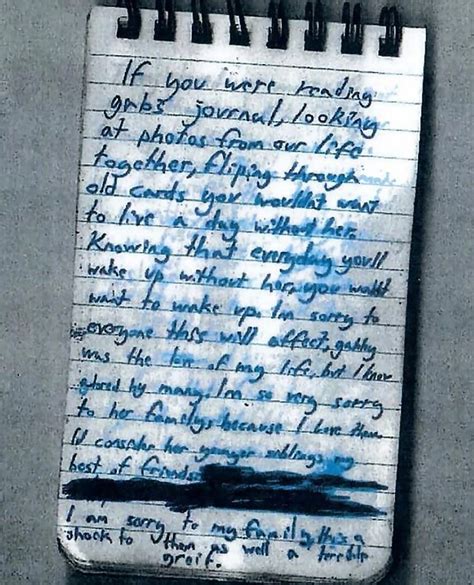 If you were reading
gabs journal, looking
at photos from our life
together, fliping through
old cards you wouldnt want
to live a day without her.
Knowing that everyday you'll
wake up without her, you wouldnt
want to wake up. I'm sorry to
everyone this will affect, gabby
was the love of my life, but I know
adored by many. I'm so very sorry
to her familys because I love them.
I'd consider her younger siblings my
best of friends
I am sorry to my family, this is a
shock to them as well a terrible
greif.